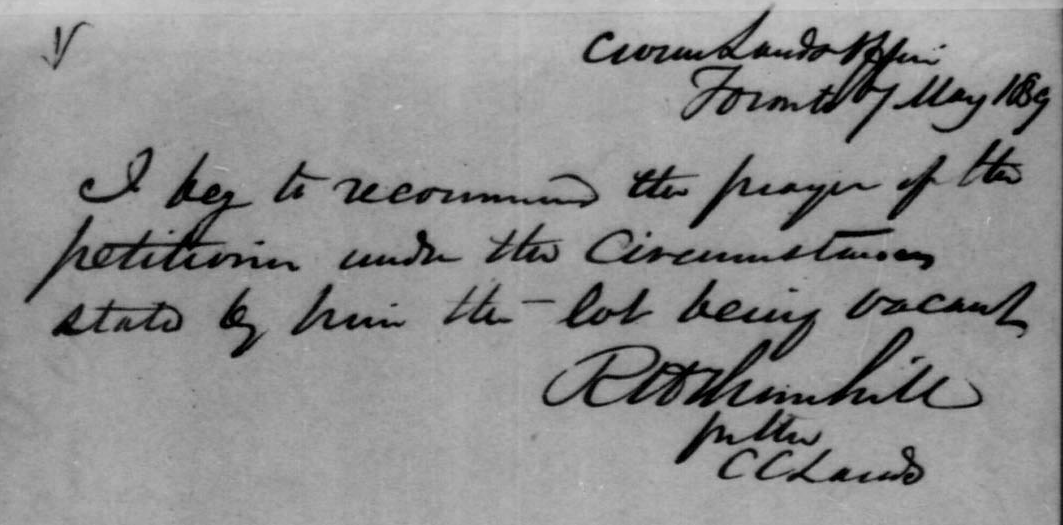 Crown Lands Office
Toronto 7 May 1839
I beg to recommend the prayer of the
petitioner under the Circumstances
stated by him the lot being vacant
R H Thornhill
for the
C C Lands